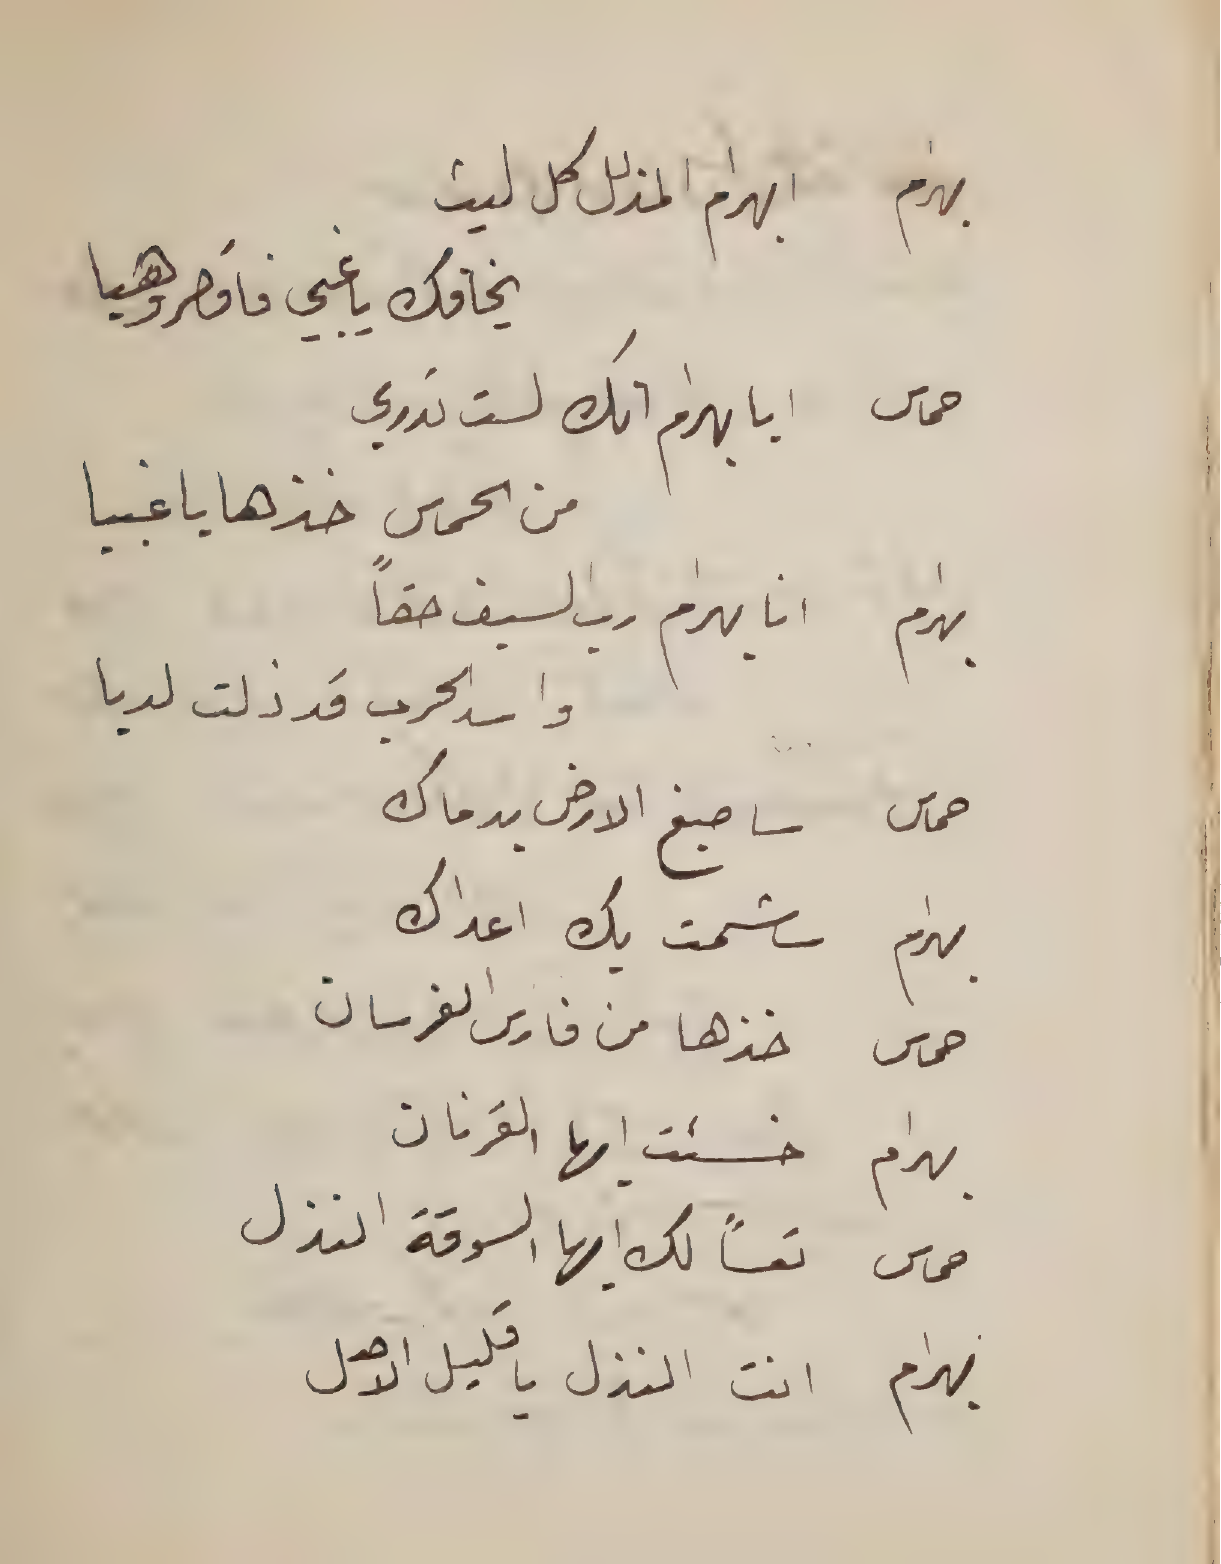 بهرام ابهرام المذلل كل ليث
يخافك يا غبي فاقصر وهيا
حماس ايا بهرام انك لست تدري
من الحماس خذها يا غبيا
بهرام انا بهرام رب السيف حقاً
واسد الحرب قد ذلت لديا
حماس ساصبغ الارض بدماك
بهرام ساشمت بك اعداك
حماس خذها من فارس الفرسان
بهرام خسئت ايها القرنان
حماس تعساً لك ايها السوقة النذل
بهرام انت النذل يا قليل الاصل